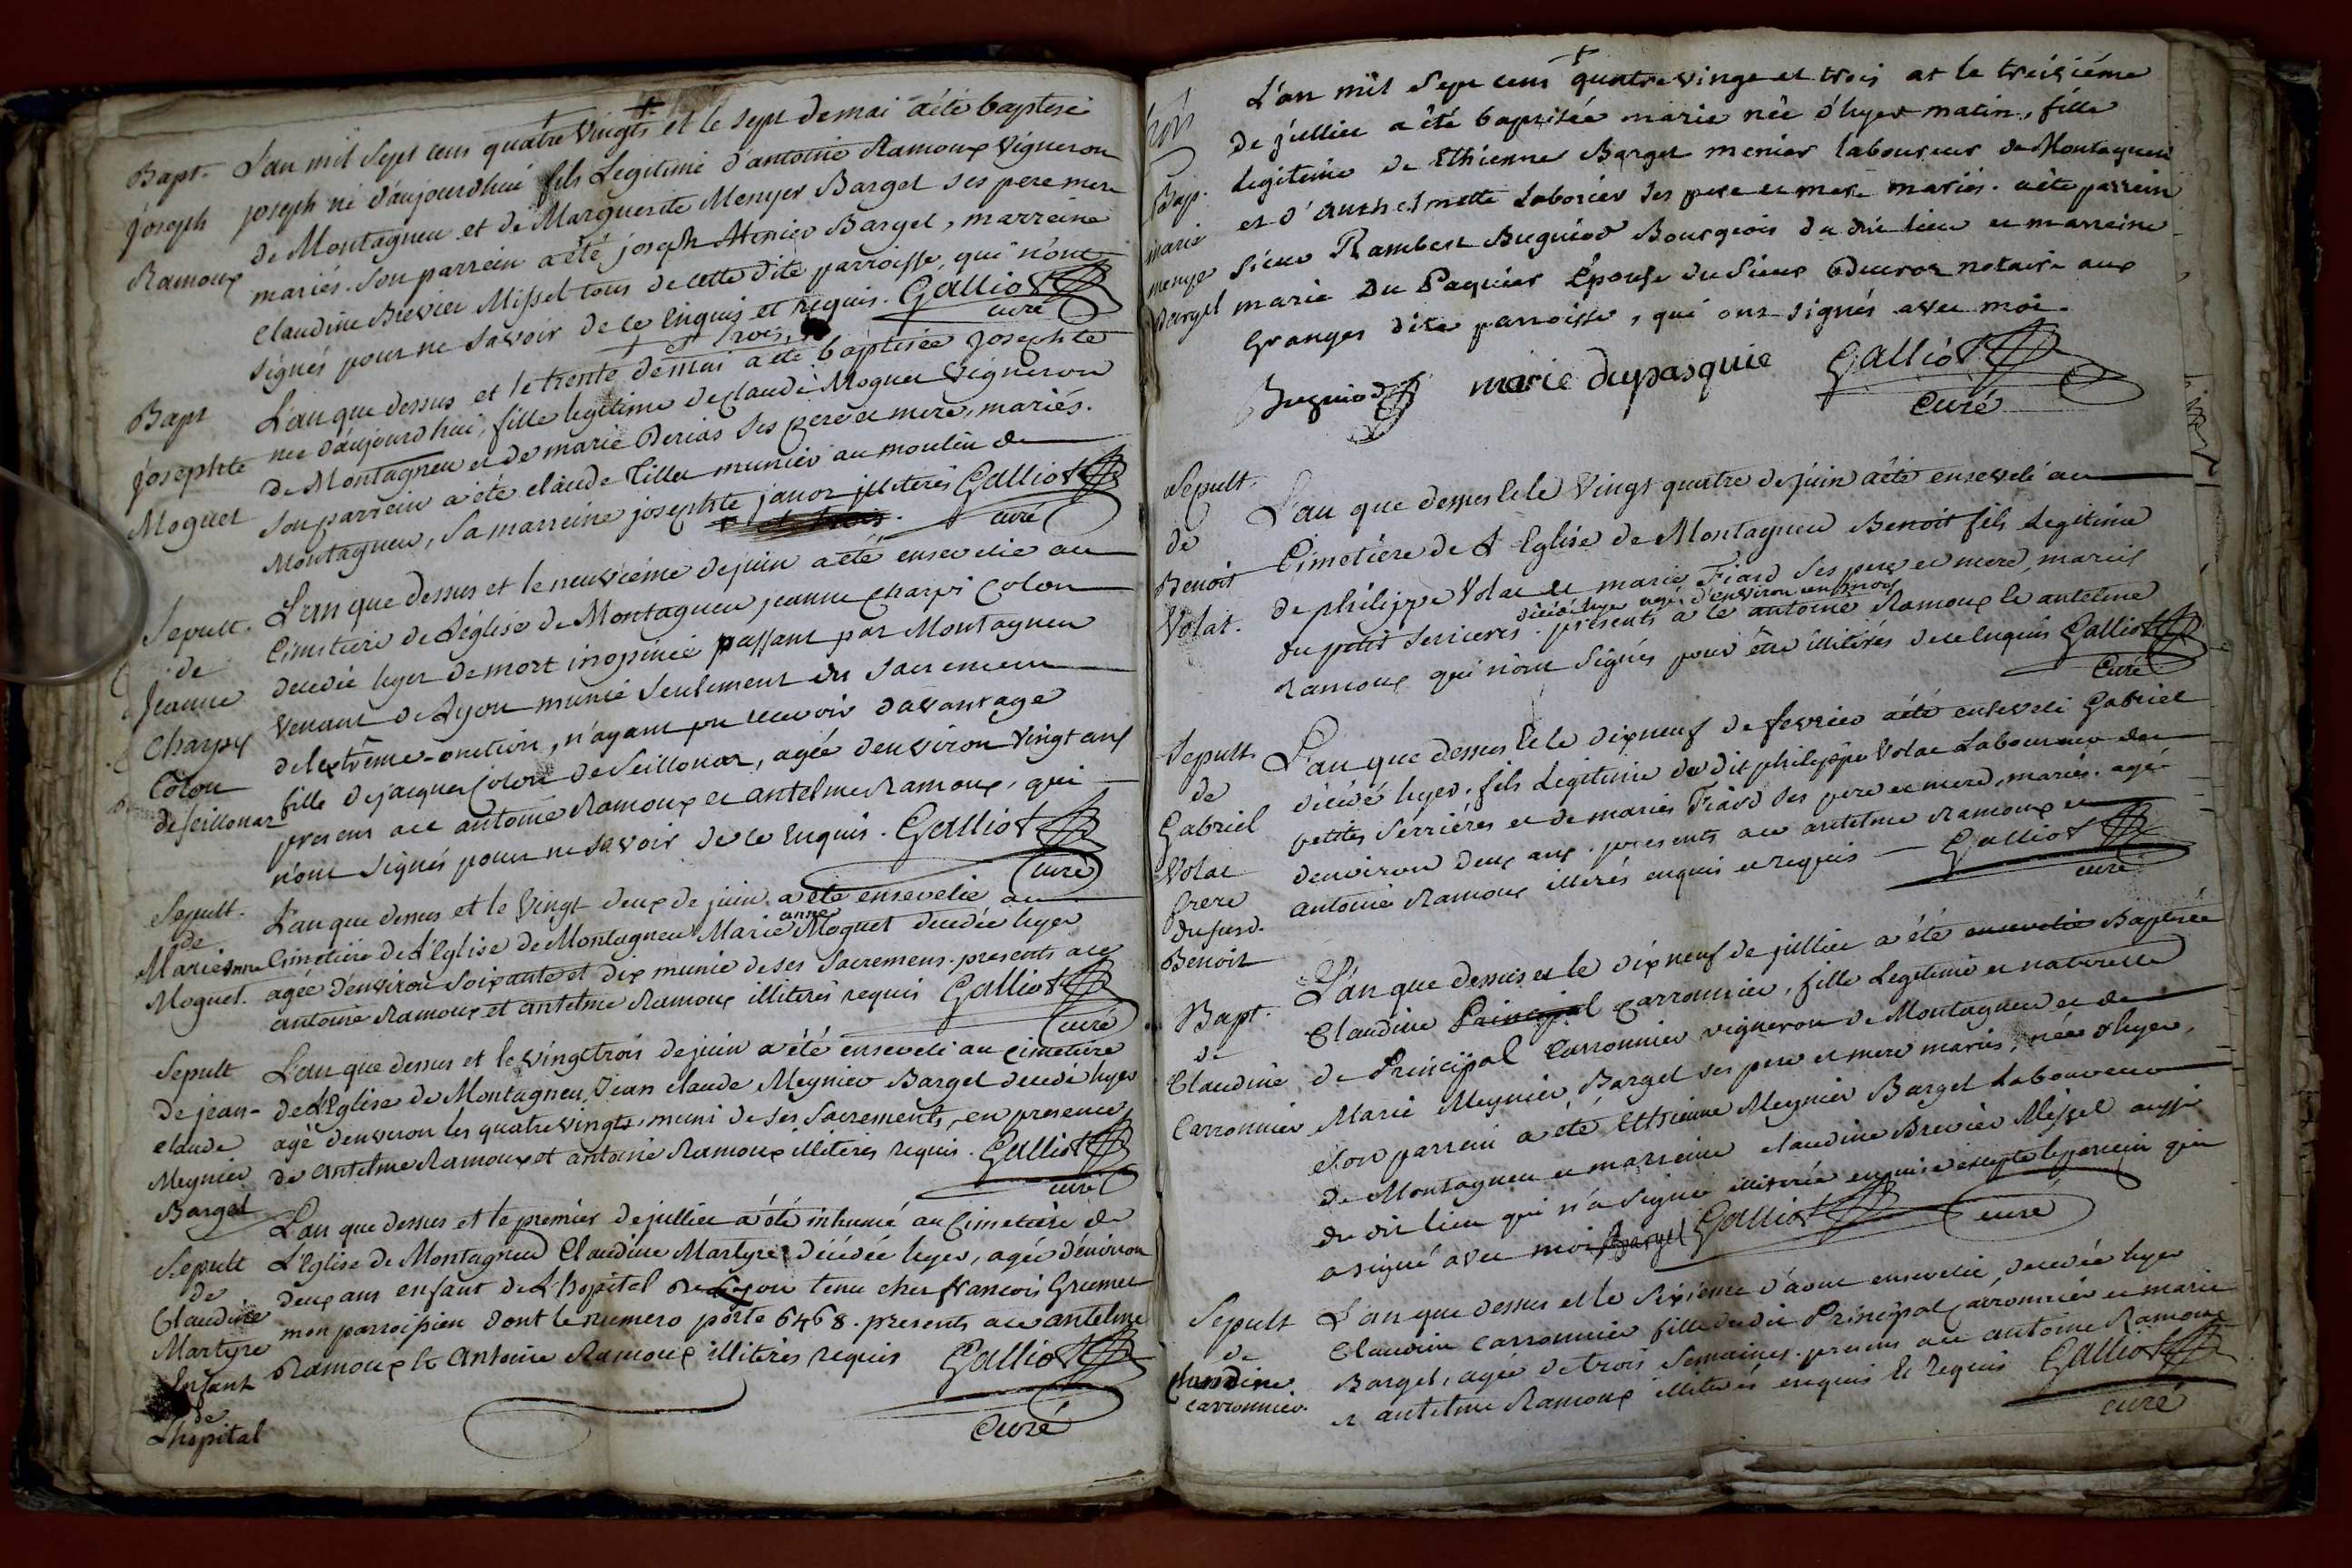 Bapt. L'an mil sept cens quatre Vingts et le sept de mai a été baptisé
joseph joseph né d'aujourdhui fils Legitime d'antoine Ramoux Vigneron
Ramoux de Montagneu et de Marguerite Menyer Bargel ses pere mere
mariés. son parrein a été joseph Menier Bargel, marreine
Claudine Brevier Missel tous de cette dite parroisse, qui n'ont
signés pour ne savoir de ce Enquis et requis. Galliot
curé
et trois,
Bapt L'an que dessus et le trente de mai a été baptisée josephte
josephte née d'aujourdhui, fille legitime de claude Moguet Vigneron
Moguet de Montagneu et de marie Derias ses pere et mere, mariés.
son parrein a été claude Tillet munier au moulin de
Montagneu, sa marreine josephte janot illiterés Galliot
et trois. curé
Sepult. L'an que dessus et le neuvième de juin a été ensevelie au
de Cimetiere de L'église de Montagneu jeanne Charpy Colon
Jeanne decedée hyer de mort inopinée passant par Montagneu
Charpy venant de Lyon munie seulement du sacrement
Colon de L'extrême-onction, n'ayant pu recevoir davantage
de Seillonaz fille de jacques Colon de Seillonaz, agée d'environ vingt ans
presens ace antoine Ramoux et antelme Ramoux, qui
n'ont signés pour ne savoir de ce Enquis. Galliot
curé
Sepult. L'an que dessus et le Vingt deux de juin a été ensevelie au
de anne
Marie anne Cimetiere de L'Eglise de Montagneu Marie Moguet decedée hyer
Moguet. agée d'environ soixante et dix munie de ses sacremens. presents ace
antoine Ramoux et antelme Ramoux illiterés requis Galliot
curé
Sepult L'an que dessus et le vingt trois de juin a été enseveli au Cimetiere
de jean- de L'Eglise de Montagneu, Jean claude Meynier Bargel decedé hyer
claude agé d'environ les quatre vingts, muni de ses sacrements, en presence
Meynier de antelme Ramoux et antoine Ramoux illiterés requis. Galliot
Bargel curé
L'an que dessus et le premier de juillet a été inhumé au Cimetiere de
Sepult L'Eglise de Montagneu Claudine Martyre décédée hyer, agée d'environ
de deux ans enfant de L'hopital de Lyon tenu cher françois Grumet
Claudine mon parroissien dont le numero porte 6468. presents ace antelme
Martyre Ramoux et antoine Ramoux illiterés requis Galliot
Enfant curé
de
L'hopital
trois L'an mil sept cens quatre vingt et trois at le treisiéme
de juillet a été baptisée marie née d'hyer matin, fille
Bap. legitime de Ethienne Bargel menier laboureur de Montagneu
marie et d'Anthelmette Laborier ses pere et mere mariés. a été parrein
menye Sieur Rambert Buguiod Bourgeois du dit lieu et marreine
Bargel marie Du Paquier Épouse du Sieur Ducroz notaire aux
Granges dite parroisse, qui ont signés avec moi.
Buguiod marie dupasquie Galliot
Curé
Sepult. L'an que dessus et le Vingt quatre de juin a été enseveli au
de Cimetiere de L'Eglise de Montagneu Benoit fils Legitime
Benoit de philippe Volat et marie Fiard ses pere et mere, mariés
Volat. décédé hyer agé d'environ un mois
du petit Serrieres. presents a ce antoine Ramoux et antelme
Ramoux qui n'ont signés pour être illiterés de ce Enquis Galliot
Curé
Sepult L'an que dessus et le dixneuf de fevrier a été enseveli Gabriel
de décédé hyer, fils Legitime du dit philippe Volat Laboureur du
Gabriel petites Serriéres et de marie Fiard ses pere et mere, mariés. agé
Volat d'environ deux ans. presents ace antelme Ramoux et
frere antoine Ramoux illiterés enquis et requis Galliot
du susd. curé
Benoit
Bapt. L'an que dessus et le dixneuf de juillet a été ensevelie Baptisée
de Claudine Principal Carronnier, fille Legitime et naturelle
Claudine de Principal Carronnier vigneron de Montagneu et de
Carronnier Marie Meynier Bargel ses pere et mere mariés, née d'hyer,
son parrein a été Ethienne Meynier Bargel Laboureur
de Montagneu et marreine claudine Brevier Missel aussi
du dit lieu qui n'a signée illiterée enquise excepté le parrein qui
a signé avec moi Bargel Galliot curé
Sepult L'an que dessus et le sixième d'aout ensevelie, decedée hyer
de Claudine Carronnier fille du dit Principal Carronnier et marie
Claudine Bargel, agée de trois semaines. presens ace antoine Ramoux
carronnier. et antelme Ramoux illiterés enquis et requis Galliot
curé